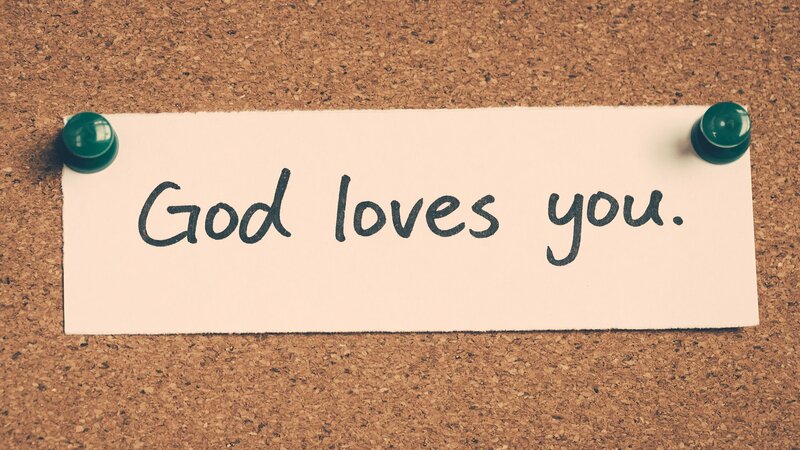 God loves you.